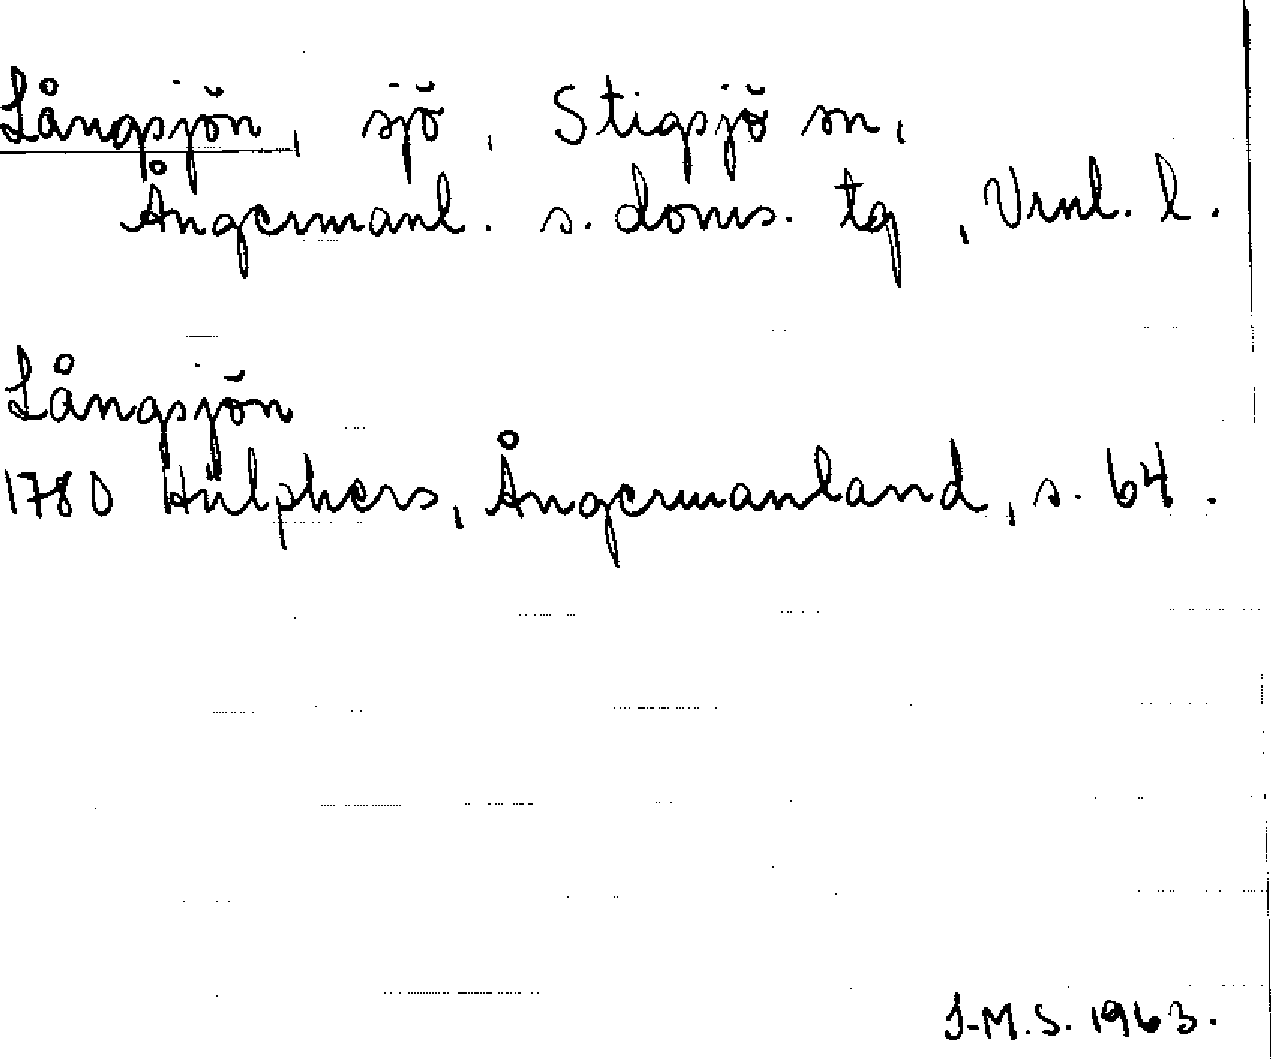 Långsjön, sjö, Stigsjö sn,
Ångermanl. s. doms. tg, Vrnl. l.
Långsjön
1780 Hülphers, Ångermanland, s. 64.
I-M.S. 1963.